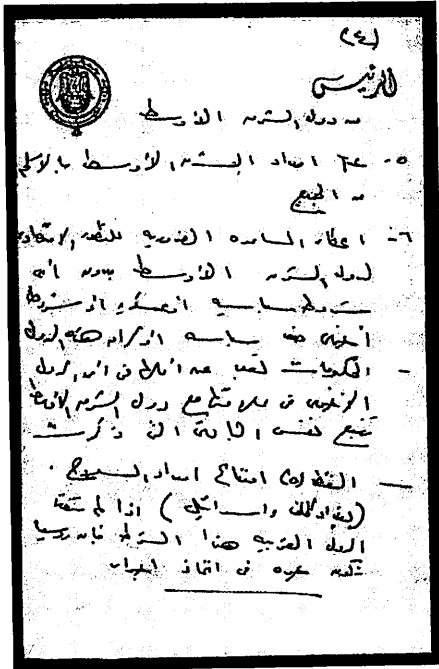 (٤)
الرئيس
من دول الشرق الأوسط
٥- عدم امداد الشرق الأوسط بالأسلحة
من الجميع
٦- اعطاء المساعدة الضرورية للتطور الاقتصادى
لدول الشرق الأوسط بدون أى
شروط سياسية أو عسكرية أو شروط
أخرى ضد سياسة أو كرامة هذه الدول
- الحكومات تعبر عن أملها فى أن الدول
الأخرى فى علاقتها مع دول الشرق الأوسط
تتبع نفس المبادئ التى ذكرت
— النقطة (٥) امتناع امداد السلاح .
(بغداد واسرائيل) اذا لم
الدول الغربية هذا الشرط فان روسيا
تكون حرة فى اتخاذ